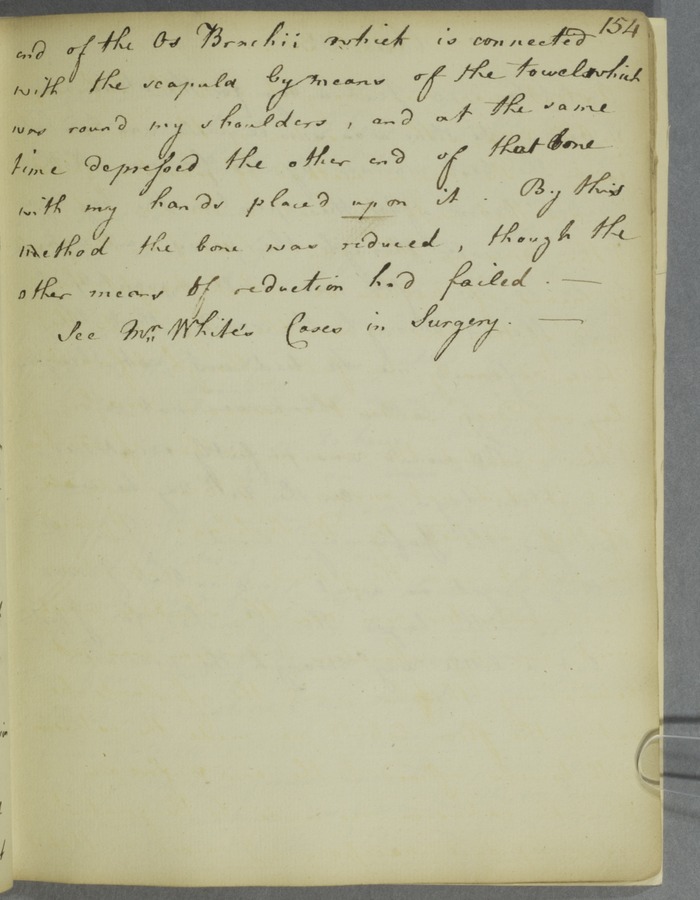 154
end of the Os Brachii which is connected
with the scapula by means of the towel which
was round my shoulders, and at the same
time depressed the other end of that bone
with my hands placed upon it. By this
method the bone was reduced, though the
other means of reduction had failed. —
See Mr. White's Cases in Surgery. —